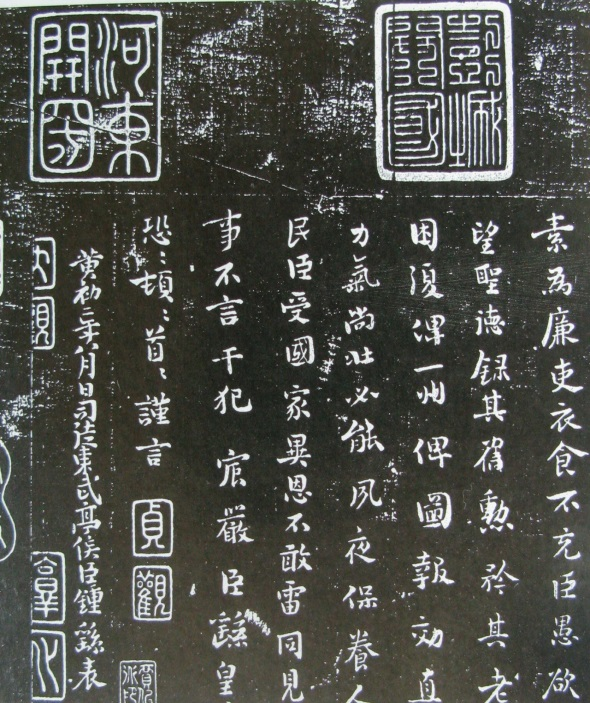 素為廉吏衣食不充臣愚欲
望聖德錄其舊勳矜其老
困復俾一州俾圖報効直
力氣尚壯必能夙夜保養人
民臣受國家異恩不敢雷同見
事不言干犯宸嚴臣繇皇
恐〻頓〻首〻謹言
貞觀
黃初二年八月日司徒東武亭侯臣鍾繇表
河東